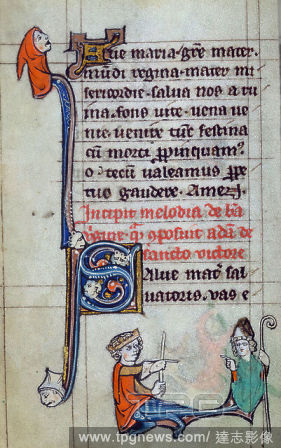 Aue maria · gr̄e mater ·
mūdi regina · mater mi
sericordie · salua nos a ru
ina · fons uite · uena ue
nie · uenire tūc festina
cū morti
o · tecū ualeamus · per
tuo gaudere · Amen
Incipit melodia de bā
adā de
sancto uictore
Salue mat̄ sal
uatoris · uas e
www.tpgnews.com / 達志影像